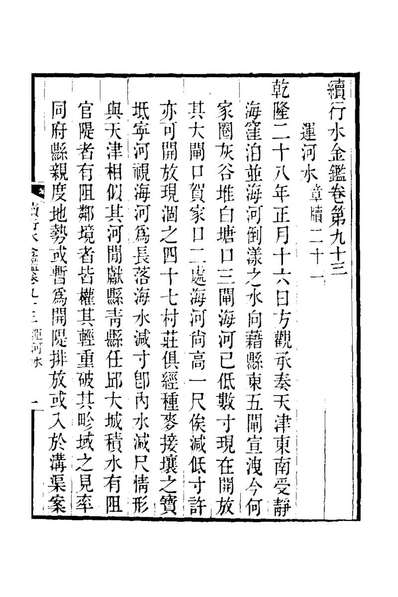 續行水金鑑卷第九十三
運河水 章牘二十一
乾隆二十八年正月十六日方觀承奏天津東南受靜
海窪泊並海河倒漾之水向藉縣東五閘宣洩今何
家圈灰谷堆白塘口三閘海河已低數寸現在開放
其大閘口賀家口二處海河尚高一尺俟減低寸許
亦可開放現涸之四十七村莊俱經種麥接壤之寶
坻寧河視海河爲長落海水減寸卽內水減尺情形
與天津相似其河閒獻縣青縣任邱大城積水有阻
官隄者有阻鄰境者皆權其輕重破其畛域之見率
同府縣親度地勢或暫爲開隄排放或入於溝渠案
續行水金鑑 卷九十三 運河水 一